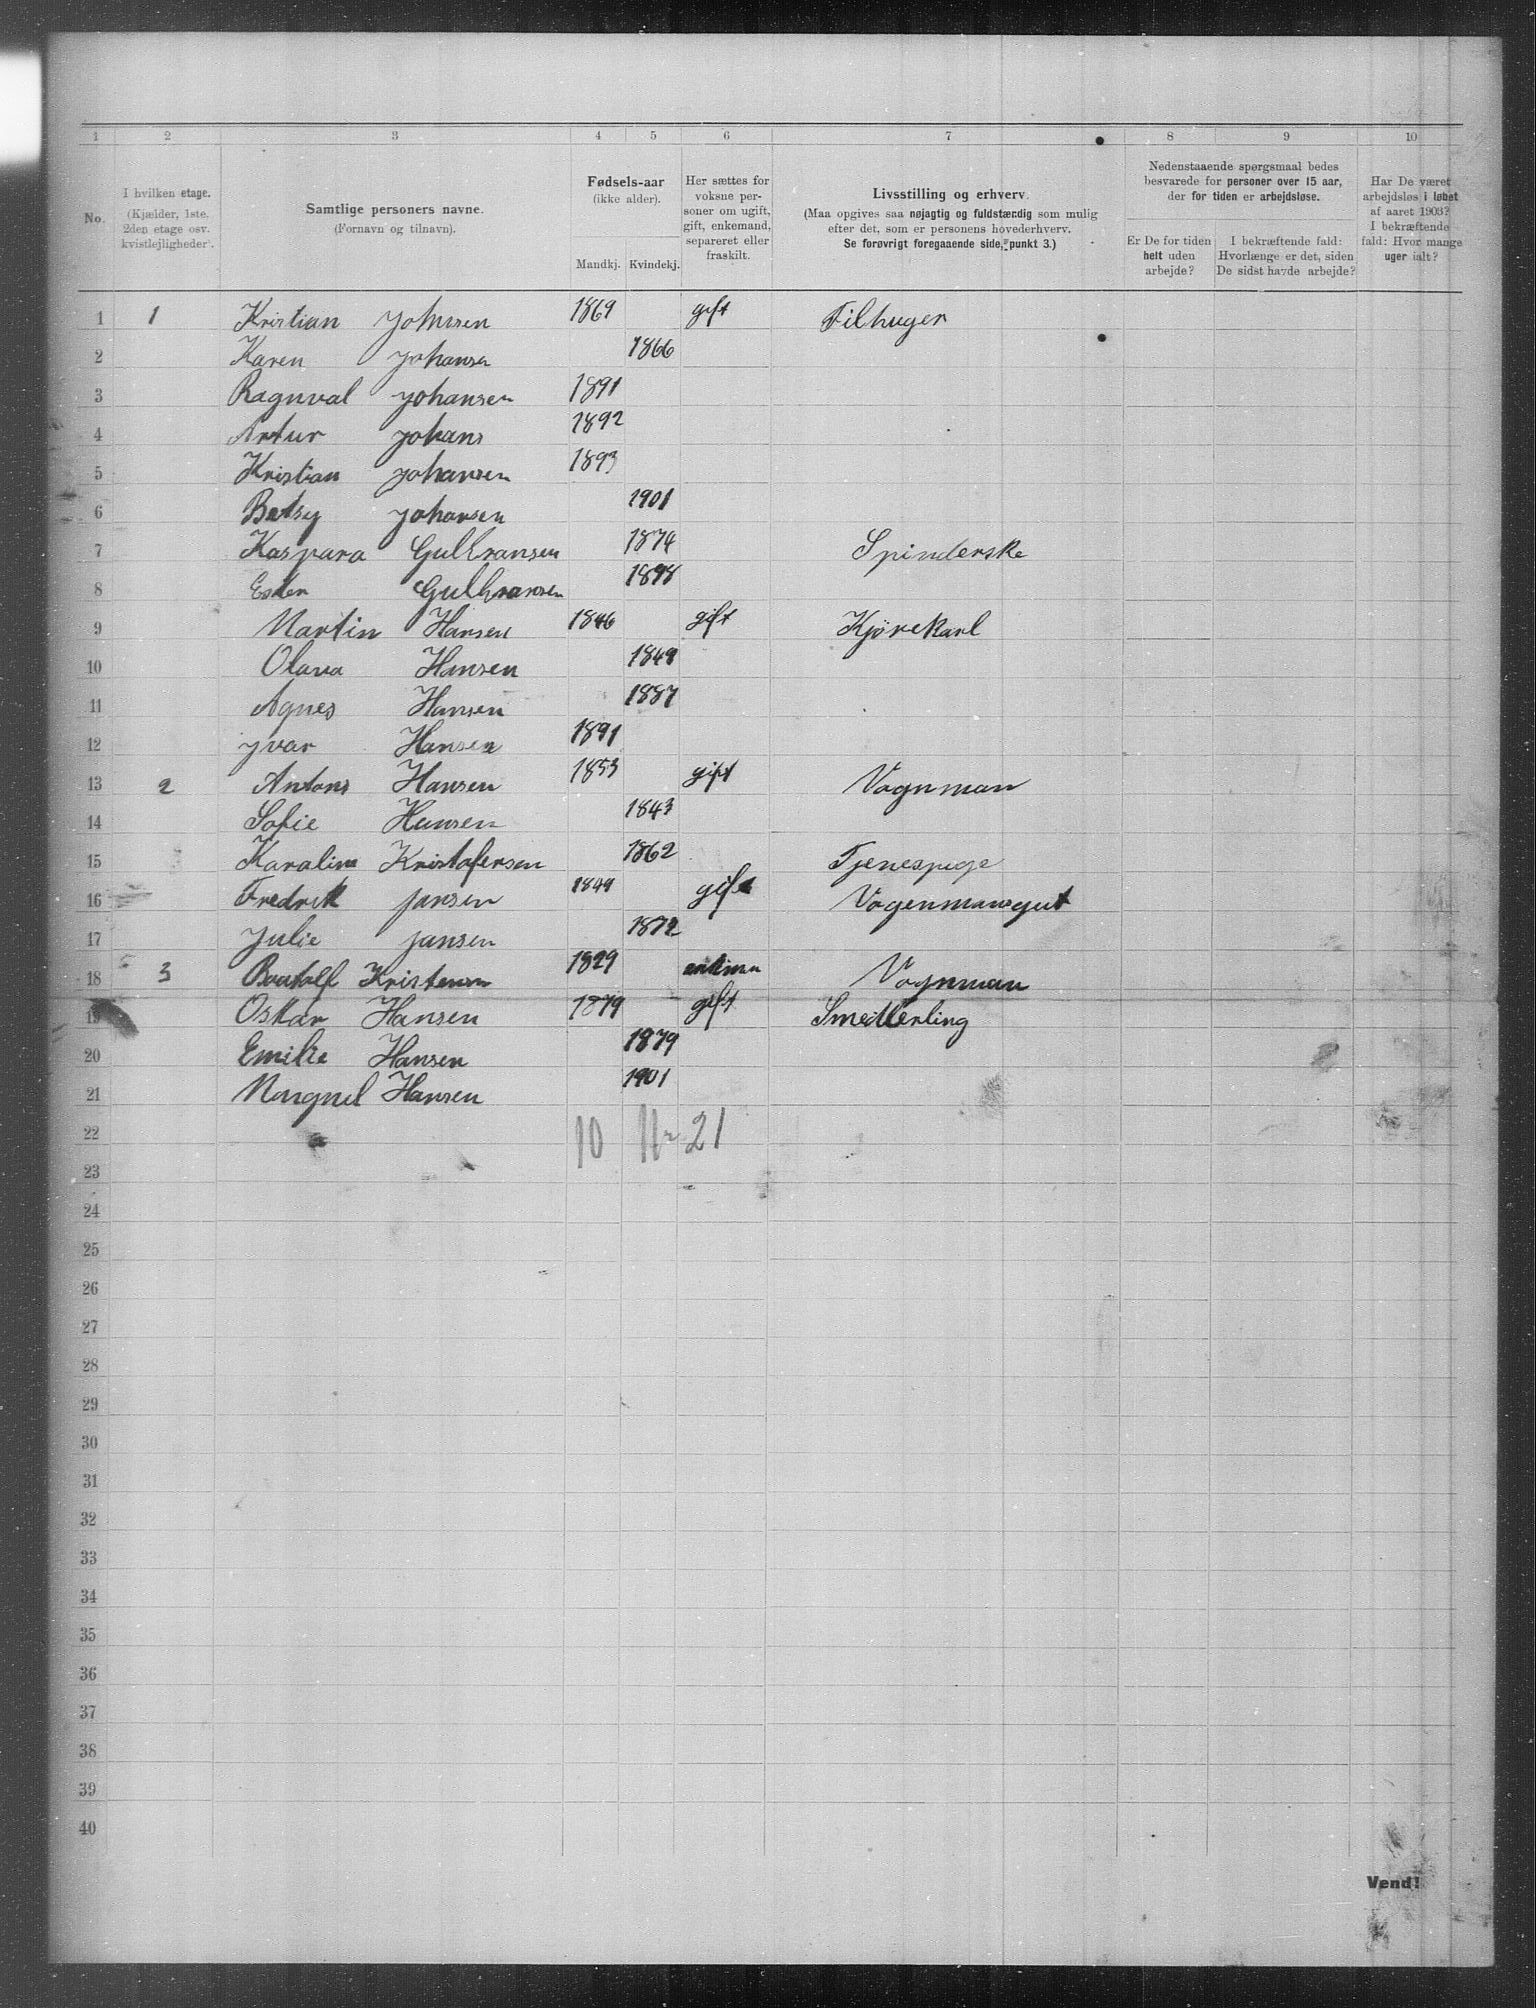 1 2 3 4 5 6 7 8 9 10
No.
I hvilken etage.
(Kjælder, 1ste.
2den etage osv.
kvistlejligheder.
Samtlige personers navne.
(Fornavn og tilnavn).
Fødsels-aar
(ikke alder).
Mandkj. Kvindekj.
Her sættes for
voksne per-
soner om ugift,
gift, enkemand,
separeret eller
fraskilt.
Livsstilling og erhverv.
(Maa opgives saa nøjagtig og fuldstændig som mulig
efter det, som er personens hovederhverv.
Se forøvrigt foregaaende side, punkt 3.)
Nedenstaaende spørgsmaal bedes
besvarede for personer over 15 aar,
der for tiden er arbejdsløse.
Er De for tiden
helt uden
arbejde?
I bekræftende fald:
Hvorlænge er det, siden
De sidst havde arbejde?
Har De været
arbejdsløs i løbet
af aaret 1903?
I bekræftende
fald: Hvor mange
uger ialt?
1 1 Kristian Johnsen 1869 gift Filhuger
2 Karen Johansn 1866
3 Ragnval Johansen 1891
4 Artur Johans 1892
5 Kristian Johansen 1893
6 Betsy Johansen 1901
7 Kaspara Gulbransen 1874 Spinderske
8 Ester Gulbransen 1898
9 Martin Hansen 1846 gift Kjørekarl
10 Olava Hansen 1849
11 Agnes Hansen 1887
12 Yvar Hansen 1891
13 2 Antons Hansen 1853 gift Vognman
14 Sofie Hansen 1843
15 Karaline Kristofersen 1862 Tjenespige
16 Fredrik Jansen 1849 gift Vogenmansgut
17 Julie Jansen 1872
18 3 Kristensen 1829 Vognman
19 Oskar Hansen 1879 gift Smedlerling
20 Emilie Hansen 1879
21 Margnel Hansen 1901
22 10 11 = 21
23
24
25
26
27
28
29
30
31
32
33
34
35
36
37
38
39
40
Vend!